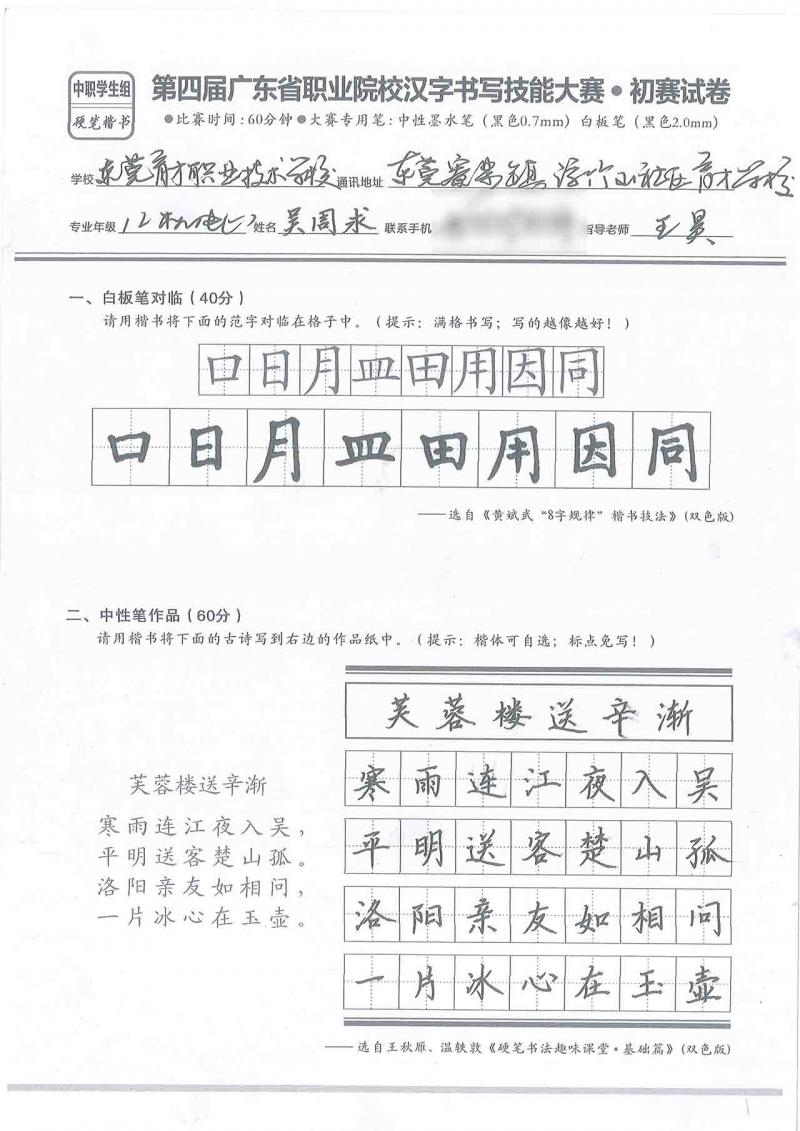 中职学生组
硬笔楷书
第四届广东省职业院校汉字书写技能大赛•初赛试卷
●比赛时间:60分钟●大赛专用笔:中性墨水笔(黑色0.7mm)白板笔(黑色2.0mm)
学校 东莞育才职业技术学校 通讯地址 东莞寮步镇浮竹山社区育才学校
专业年级 12机电(2) 姓名 吴周求 联系手机 指导老师 王昊
一、白板笔对临(40分)
请用楷书将下面的范字对临在格子中。(提示:满格书写;写的越像越好!)
口日月皿田用因同
口日月皿田用因同
——选自《黄斌武“8字规律”楷书技法》(双色版)
二、中性笔作品(60分)
请用楷书将下面的古诗写到右边的作品纸中。(提示:楷体可自选;标点免写!)
芙蓉楼送辛渐
寒雨连江夜入吴,
平明送客楚山孤。
洛阳亲友如相问,
一片冰心在玉壶。
芙蓉楼送辛渐
寒雨连江夜入吴
平明送客楚山孤
洛阳亲友如相问
一片冰心在玉壶
——选自王秋雁、温轶敦《硬笔书法趣味课堂·基础篇》(双色版)